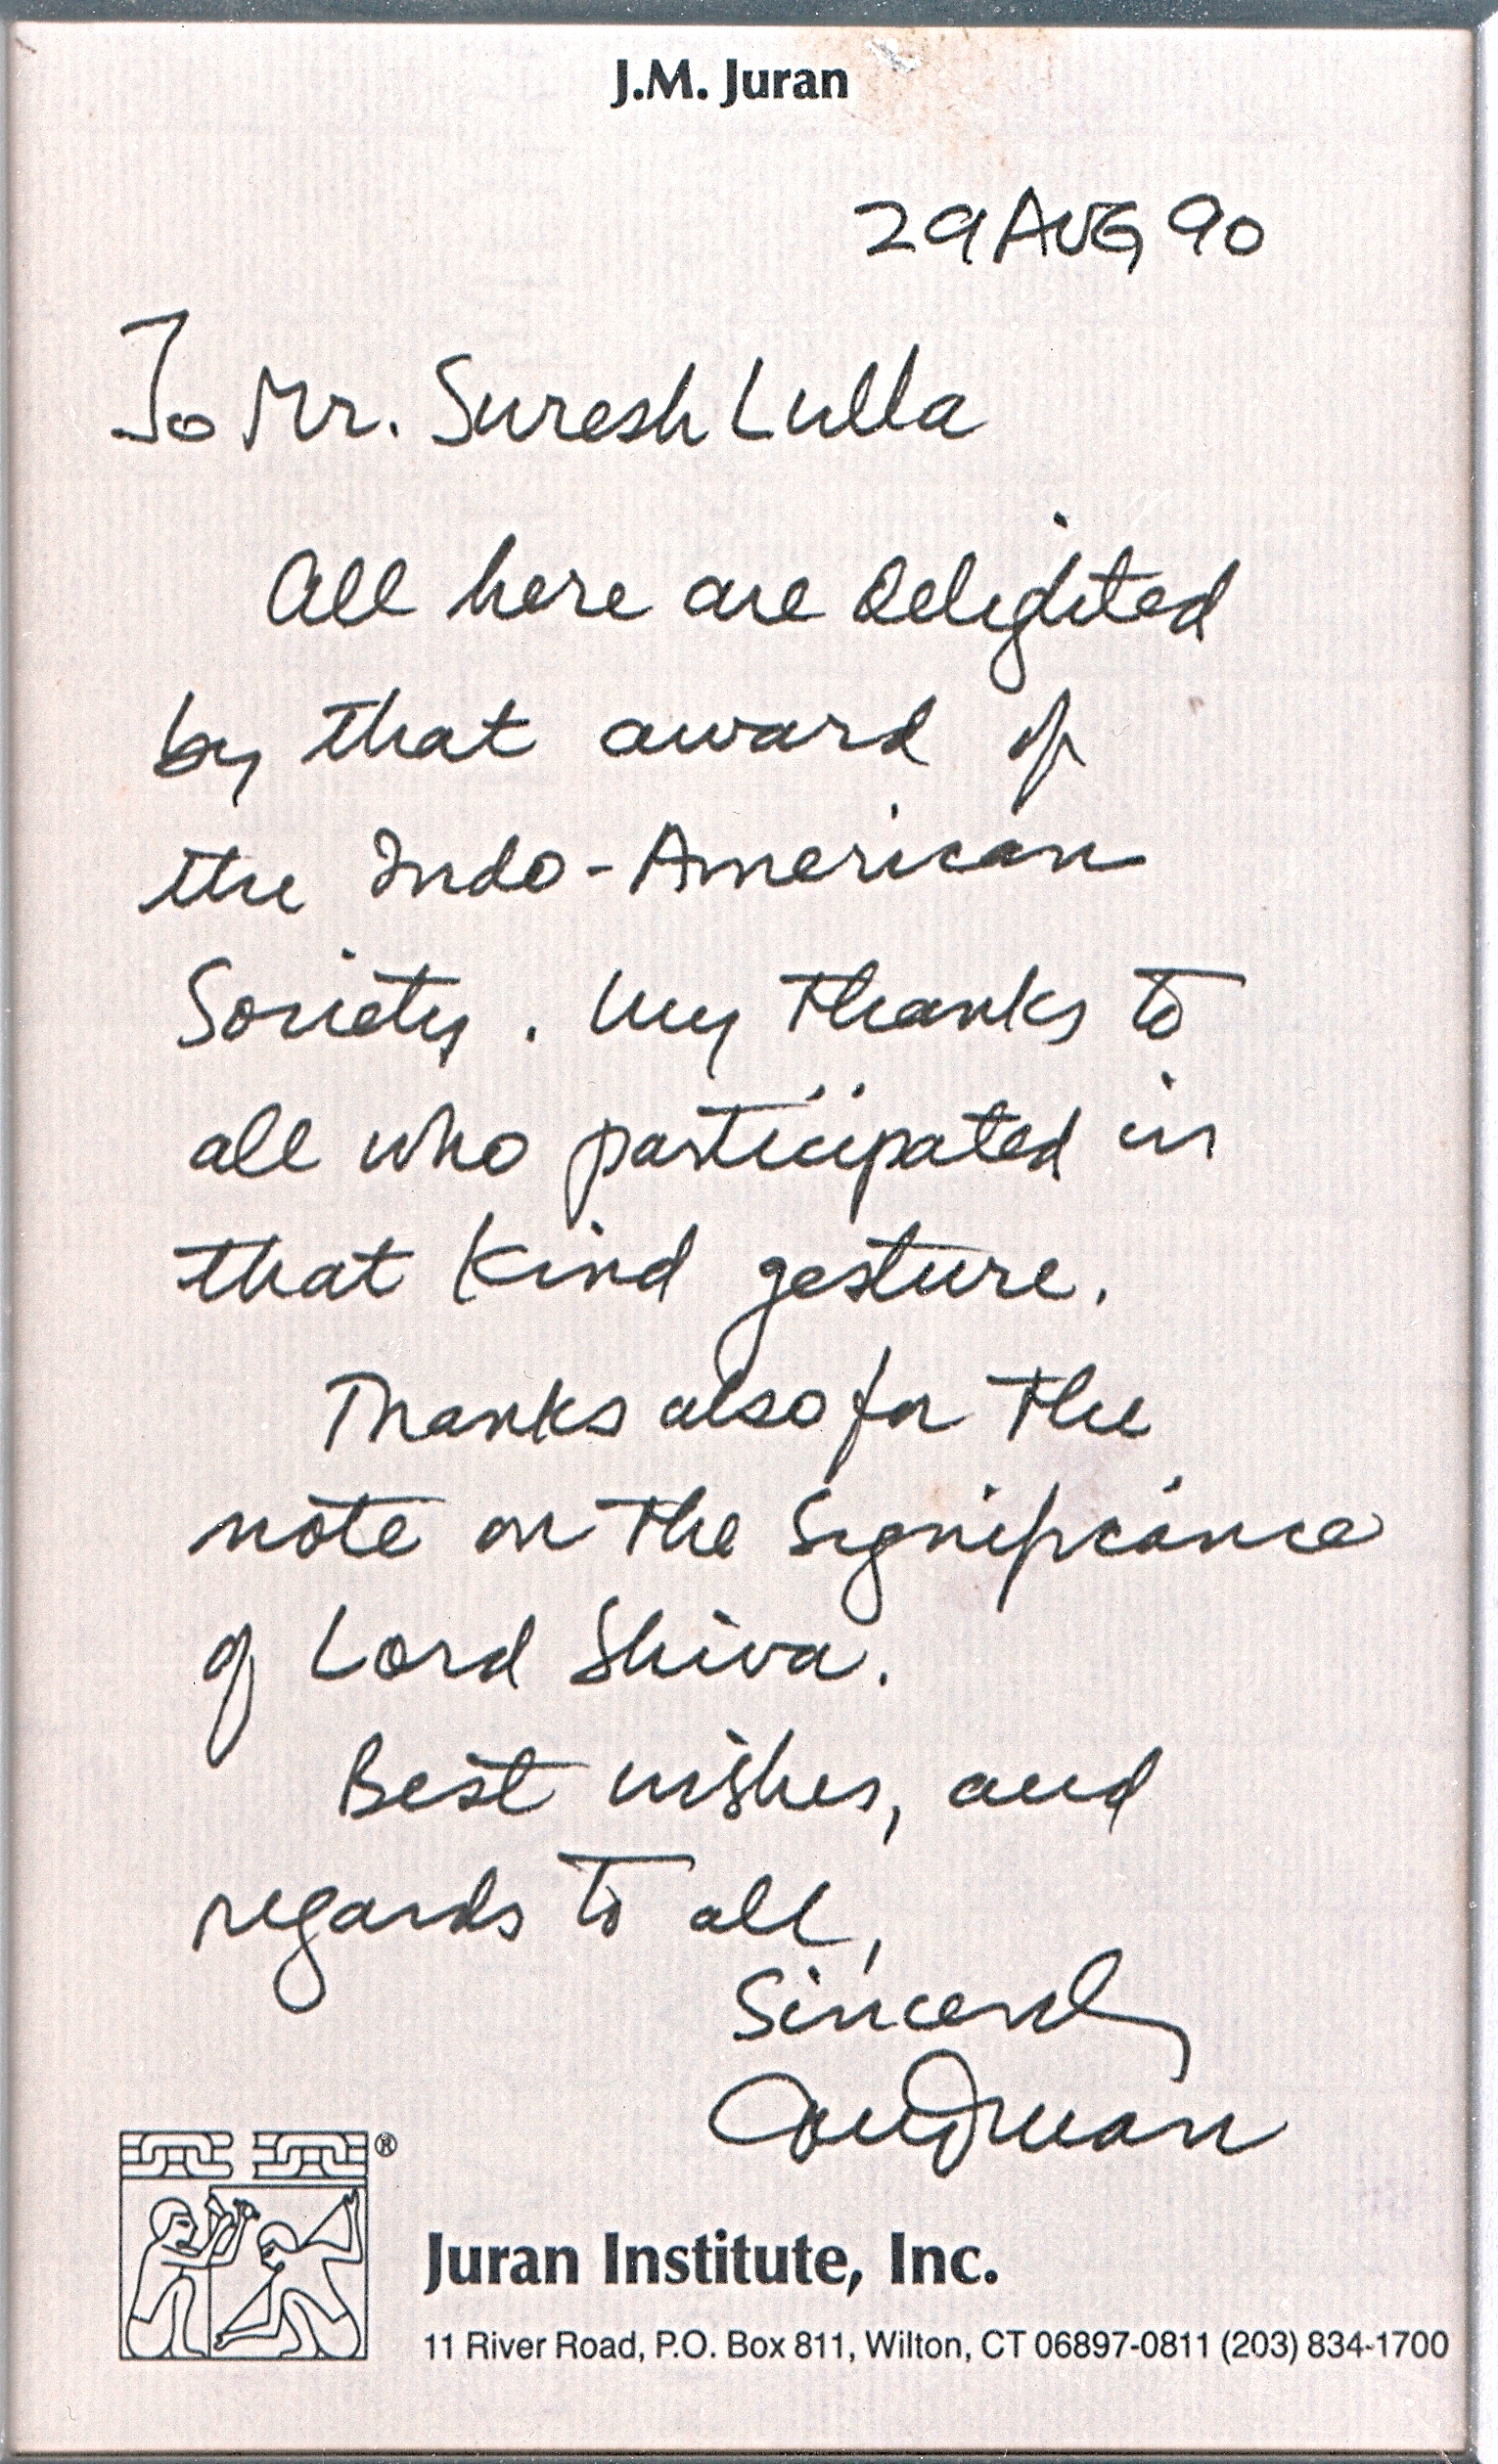 J.M. Juran
29 AUG 90
To Mr. Suresh Lulla
All here are delighted
by that award of
the Indo-American
Society. My thanks to
all who participated in
that kind gesture.
Thanks also for the
note on the significance
of Lord Shiva.
Best wishes, and
regards to all,
Sincerely
Juran
®
Juran Institute, Inc.
11 River Road, P.O. Box 811, Wilton, CT 06897-0811 (203) 834-1700